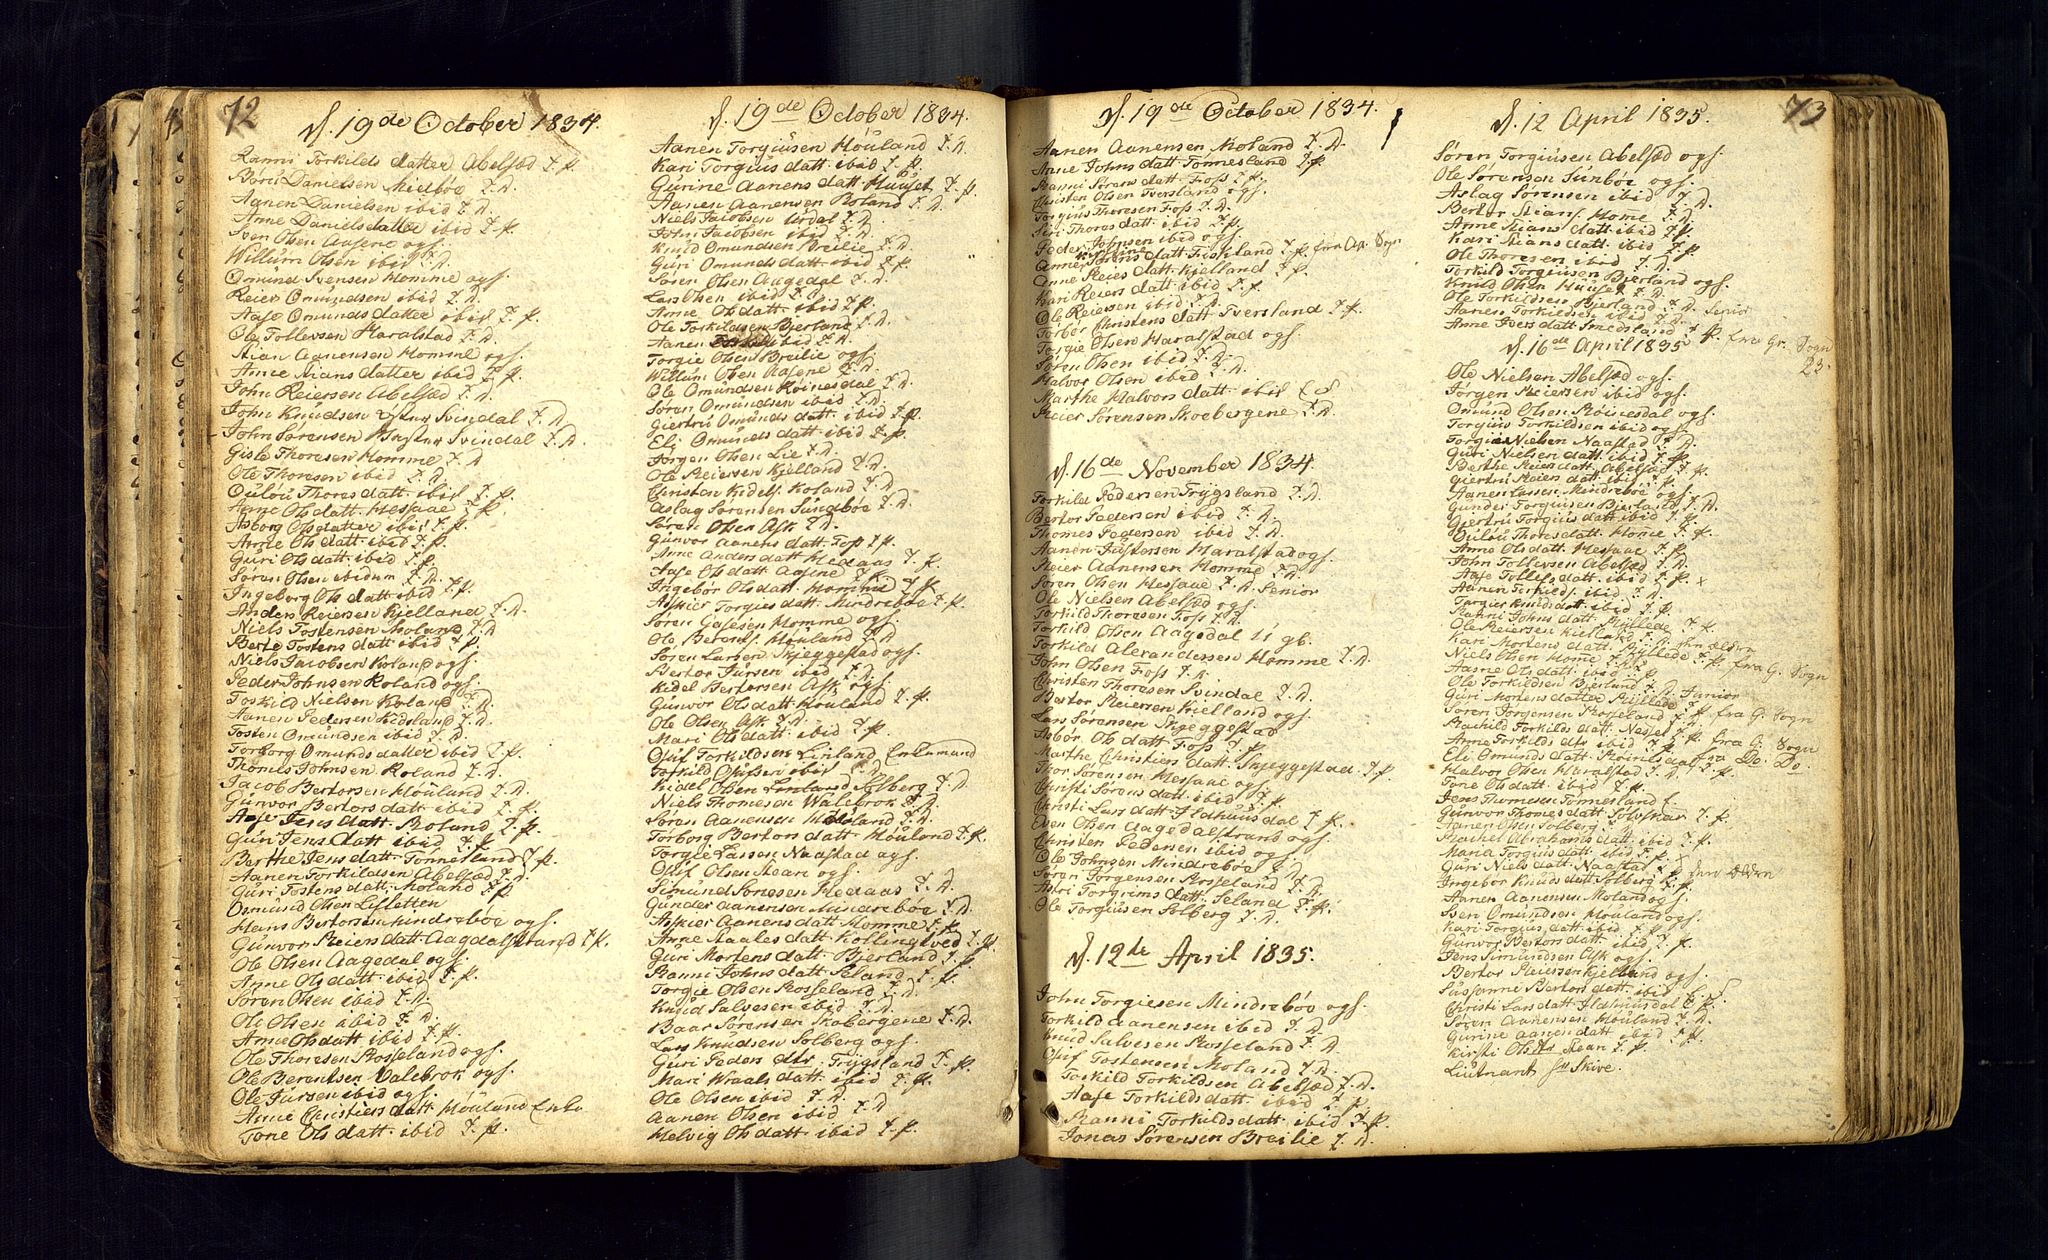 72
d. 19de October 1834.
Ranni Torkilds datter Abelsæd T. P.
Børü Danielsen Midbøe T. D.
Aanen Danielsen ibid T. D.
Anne Daniels datter ibid T. P.
Sven Olsen Aasene ogs.
Willum Olsen ibid T. D.
Omund Svensen Homme ogs.
Reier Omundsen ibid T. D.
Aase Omunds datter ibid T. P.
Ole Tollevsen Haralstad T. D.
Stian Aanensen Homme ogs.
Anne Stians datter ibid T. P.
John Reiersen Abelsæd T. D.
John Knudsen Svindal T. D.
John Sørensen Svindal T. D.
Gisle Thoresen Homme T. D
Ole Thoresen ibid T. D
Oulou Thores datt. ibid T. P.
Anne Ols datt. Messaae T. P.
Asborg Olsdatter ibid T. P.
Anne Ols datt. ibid T. P.
Guri Ols datt. ibid T. P.
Søren Olsen ibidum T. D.
Ingeborg Ols datt ibid T. P.
Anders Reiersen Kielland T. D.
Niels Tostensen Moland T. D
Berte Tostens datt ibid T. P.
Niels Jacobsen Roland ogs.
Peder Johnsen Roland ogs.
Torkild Nielsen Roland T. D.
Aanen Pedersen Kidsland T. D.
Tosten Omundsen ibid T. D
Torborg Omunds datter ibid T. P.
Thomes Johnsen Roland T. D.
Jacob Bertorsen Houland T. D.
Gunvor Bertors datt ibid T. P.
Aase Jens datt Roland T. P.
Guri Jens datt ibid T. P.
Berthe Jens datt. Tonnesland T. P.
Aanen Torkildsen Abelsæd T. D.
Guri Tostens datt. Moland T. P.
Osmund Olsen Lisletten
Hans Bertorsen Mindrebøe ogs.
Gunvor Reiers datt. Aagdalstrand T. P.
Ole Olsen Aagedal ogs.
Anne Ols datt. ibid T. P.
Søren Olsen ibid T. D.
Ole Olsen ibid T. D.
Anne Olsdatt ibid T. P.
Ole Thoresen Rosseland ogs.
Ole Berentsen Valebrok ogs.
Ole Jursen ibid ogs.
Anne Christiens datt. Houland Enke
Tone Ols datt. ibid T. P.
d. 19de October 1834.
Aanen Torgiusen Houland T. D.
Kari Torgius datt ibid T. P.
Gurine Aanens datt Huuset T. P.
Aanen Aanensen Roland T. D.
Niels Jacobsen Urdal T. D.
John Jacobsen ibid T. D.
Knud Omundsen Breilie T. D
Guri Omunds datt ibid T. P.
Søren Olsen Aagedal T. D.
Lars Olsen ibid T. D.
Anne Ols datt ibid T. P.
Ole Torkildsen Bjerland T. D.
Aanen ibid T. D.
Torgie Olsen Breilie ogs.
Willum Olsen Aasene T. D.
Ole Omundsen Roinesdal T. D.
Søren Omundsen ibid T. D.
Giertru Omunds datt. ibid T. P.
Eli Omunds datt. ibid T. P.
Jørgen Olsen Lie T. D.
Ole Reiersen Kjelland T. D.
Christen Kidels. Roland T. D.
Aslag Sørensen Sundbøe T. D.
Søren Olsen Ask T. D.
Gunvor Aanens datt. Foss T. P.
Anne Anders datt Hedaas T. P.
Aase Ols datt. Aasene T. P.
Ingebør Ols datt. Homme T. P.
Askier Torgies datt. Mindrebøe T. P.
Søren Galesen Homme ogs.
Ole Berents. Houland T. D
Søren Larsen Skjeggestad ogs.
Bertor Jursen ibid T. D.
Kidel Bertorsen Ask ogs.
Gunvor Ols datt. Houland T. P.
Ole Olsen Ask T. D.
Mari Ols datt. ibid T. P.
Oluf Torkildsen Linland Enkemand
Torkild Olufsen ibid T. D
Kidel Olsen Solberg T. D
Niels Thomesen Walebrok T. D.
Søren Aanensen Houland T. D.
Torborg Bertors datt. Houland T. P.
Torgie Larsen Naastad ogs.
Oluf Olsen Stean ogs.
Simund Sørresen Hedaas T. D.
Gunder Aanensen Mindrebøe T. D.
Askier Aanens datt. Homme T. P.
Anne Staales datt. Kollingtved T. P.
Guri Mortens datt. Bjerland T. P.
Ranni Johns datt. Seland T. P.
Torgie Olsen Rosseland T. D.
Knud Salvesen ibid T. D.
Baar Sørensen Skobergene T. D.
Lars Knudsen Solberg ogs.
Guri Peders dtr. Trygsland T. P.
Mari Wraals datt. ibid T. P.
Ole Olsen ibid T. D
Aanen Olsen ibid T. D
Helvig Ols datt. ibid T. P.
d. 19de October 1834.
Aanen Aanensen Moland T. D.
Anne Johns datt Tonnesland T. P.
Ranni Sørens datt Foss T. P.
Christen Olsen Iversland ogs.
Torgius Thoresen Foss T. D.
Siri Thores datt. ibid T. P.
Peder Johnsen ibid ogs.
Anne datt. Fiskland T. P. fra Ap. Sogn
Anne Reiers datt Kjelland T. P.
Kari Reiers datt. ibid T. P.
Ole Reiersen ibid T. D.
Torbør Christens datt Iversland T. P.
Torgie Olsen Haralstad ogs.
Søren Olsen ibid T. D.
Halvor Olsen ibid T. D.
Marthe Halvors datt ibid
Reier Sørensen Skoebergene T. D.
d. 16de November 1834.
Torkild Pedersen Trygsland T. D.
Bertor Pedersen ibid T. D.
Thomes Pedersen ibid T. D.
Aanen Justersen Haralstad ogs.
Reier Aanensen Homme T. D.
Søren Olsen Messaae T. D. Senior
Ole Nielsen Abelsæd ogs.
Torkild Thoresen Foss T. D.
Torkild Olsen Aagedal 11 gb.
Torkild Alexandersen Homme T. D.
John Olsen Foss T. D.
Christen Thoresen Svindal T. D.
Bertor Reiersen Kielland ogs.
Lars Sørensen Skjeggestad
Asbør Ols datt. Foss T. P.
Marthe Christiens datt. Skjeggestad T. P.
Thor Sørensen Messaae ogs.
Christi Sørens datt. ibid T. P.
Christi Lars datt. Ildhuusdal T. P.
Even Olsen Aagedalstrand ogs.
Christen Pedersen ibid ogs.
Ole Johnsen Mindrebøe T. D.
Søren Jørgensen Rosseland T. D.
Astri Torgrims datt. Seland T. P.
Ole Torgiusen Solberg T. D.
d. 12de April 1835.
John Torgiesen Mindrebøe ogs.
Torkild Aanensen ibid T. D.
Knud Salvesen Rosseland T. D.
Oluf Tostensen Moland T. D.
Torkild Torkildsen Abelsæd T. D.
Aase Torkilds datt. ibid T. P.
Ranni Torkilds datt. ibid T. P.
Jonas Sørensen Breilie T. D.
73
d. 12 April 1835.
Søren Torgiusen Abelsæd ogs.
Ole Sørensen Sunbøe ogs.
Aslag Sørensen ibid T. D.
Bertor Stians. Home T. D.
Anne Stians datt. ibid T. P.
Kari Stians datt. ibid T. P.
Ole Thoresen ibid T. D.
Torkild Torgiusen Bjerland ogs.
Knud Olsen Huuset T. D.
Ole Torkildsen Bjerland T. D. Senior
Aanen Torkildsen ibid T. D.
Anne Ivers datt Smedsland T. P. fra Gr. Sogn
d. 16de April 1835
23.
Ole Nielsen Abelsæd ogs.
Jørgen Reiersen ibid ogs.
Omund Olsen Roinesdal ogs.
Torgius Torkildsen ibid ogs.
Torgie Nielsen Naastad T. D.
Guri Nielsen datt. ibid T. P.
Berthe Reiers datt. Abelsæd T. P.
Giertru Reiers datt. ibid T. P.
Aanen Larsen Mindrebøe ogs.
Gunder Torgiusen Bjerland T. D.
Gjertru Torgius datt. ibid T. P.
Oulou Thores datt. Home T. P.
Anne Ols datt. Messaae T. P.
John Tollevsen Abelsæd T. D.
Aase Tollefs datt. ibid T. P. x
Aanen Torkilds. ibid T. D.
Torgier Knuds datt. ibid T. P.
Ranni Johns datt. Røllede T. P.
Ole Reiersen Kjelland T. D. den ældre
Kari Mortens datt. Røllede T. P. fra G. Sogn
Niels Olsen Home T. D.
Aasne Ols datt. ibid T. P.
Ole Torkildsen Bjerland T. D. Junior
Guri Mortens datter Røllede T. P. fra G. Sogn
Søren Jørgensen Rosseland T. D.
Rachild Torkilds datt. Nasset T. P. fra G. Sogn
Anne Torkilds dtr ibid T. P. fra Do. Do.
Eli Omunds datt. Roinesdal T. P.
Halvor Olsen Haralstad T. D.
Tone Ols datt. ibid T. P.
Jens Thomesen Tonnesland E.
Gunvor Thomes datt. Solvskar T. P.
Aanen Olsen Solberg T. D.
Rachel Abrahams datt. ibid T. P.
Maria Torgius datt. ibid T. P.
Guri Niels datt. Naastad T. P. den ældre
Ingebør Knuds datt. Solberg T. P.
Aanen Aanensen Moland ogs.
Sven Omundsen Houland ogs.
Kari Torgius datt. ibid T. P.
Gunvor Bertors datt. ibid T. P.
Jens Simundsen Ask ogs.
Bertor Reiersen Kjelland ogs.
Susanne Bertors datt. ibid
Christi Lars datt. Ildhuusdal T. P.
Søren Aanensen Houland T. D.
Gurine Aanens datt ibid T. P.
Kirsti Ols dtr Stean T. P.
Liutnant Skive.